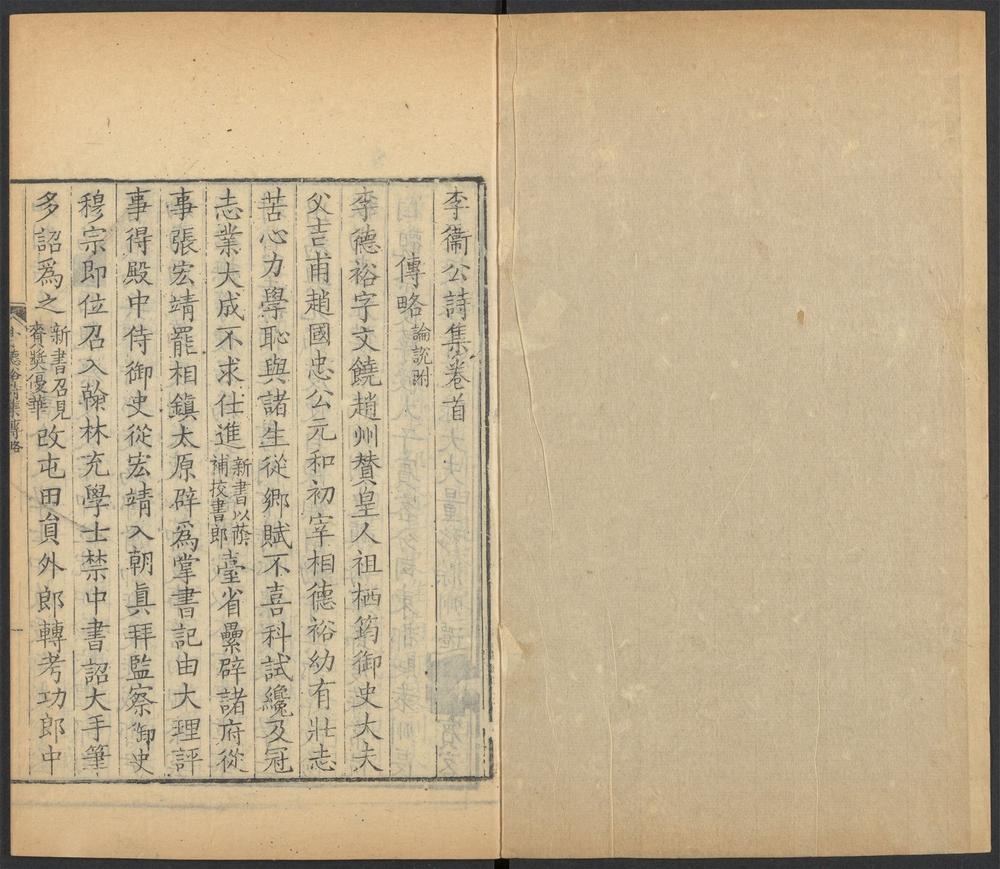 李衞公詩集卷首
傳略論說附
李德裕字文饒趙州贊皇人祖栖筠御史大夫
父吉甫趙國忠公元和初宰相德裕幼有壯志
苦心力學恥與諸生從鄉賦不喜科試纔及冠
志業大成不求仕進新書以蔭補校書郎臺省累辟諸府從
事張宏靖罷相鎮太原辟爲掌書記由大理評
事得殿中侍御史從宏靖入朝眞拜監察御史
穆宗即位召入翰林充學士禁中書詔大手筆
多詔爲之新書召見賚獎優華改屯田員外郎轉考功郎中
李德裕詩集傳略
一